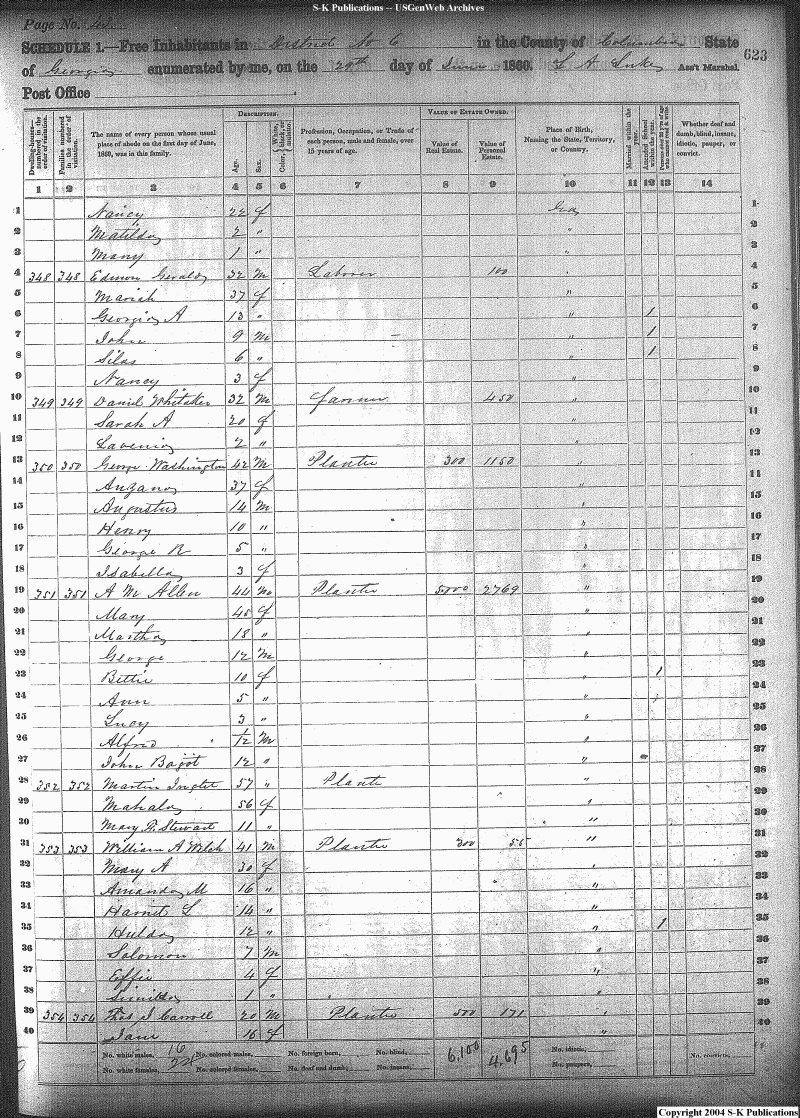 S-K Publications -- USGenWeb Archives
Page No.
SCHEDULE 1.—Free Inhabitants in District No 6 in the County of Columbia State
of Georgia enumerated by me, on the 29th day of June 1860. Ass't Marshal. 623
Post Office
Dwelling-houses—numbered in the order of visitation.
Families numbered in the order of visitation.
The name of every person whose usual place of abode on the first day of June, 1860, was in this family.
DESCRIPTION.
Age.
Sex.
Color, White, black, or mulatto.
Profession, Occupation, or Trade of each person, male and female, over 15 years of age.
VALUE OF ESTATE OWNED.
Value of Real Estate.
Value of Personal Estate.
Place of Birth, Naming the State, Territory, or Country.
Married within the year.
Attended School within the year.
Persons over 20 y'rs of age who cannot read & write.
Whether deaf and dumb, blind, insane, idiotic, pauper, or convict.
1 2 3 4 5 6 7 8 9 10 11 12 13 14
1 Nancy 22 f Geo 1
2 Matilda 2 " " 2
3 Mary 1 " " 3
4 348 348 Gerald 32 M Laborer 100 4
5 Mariah 37 f " 5
6 Georgia A 13 " " 1 6
7 John 9 M " 1 7
8 Silas 6 " " 1 8
9 Nancy 3 f " 9
10 349 349 Daniel Whitaker 32 M farmer 450 " 10
11 Sarah A 20 f " 11
12 Lavenia 2 " " 12
13 350 350 George Washington 42 M Planter 300 1150 " 13
14 37 f " 11
15 Augustus 14 M " 15
16 Henry 10 " " 16
17 George R 5 " " 17
18 Isabella 3 f " 18
19 351 351 A M Allen 44 M Planter 5000 2769 " 19
20 Mary 45 f " 20
21 Martha 18 " " 21
22 George 12 M " 22
23 Bettie 10 f " 1 23
24 Ann 5 " " 24
25 Lucy 3 " " 25
26 Alfred 1/12 M " 26
27 John 12 " " 27
28 352 352 Martin Inglet 57 " Plante " 28
29 Mahala 56 f " 29
30 Mary F. Stewart 11 " " 30
31 353 353 William A Welch 41 M Planter 300 55 " 31
32 Mary A 30 f " 32
33 Amanda M 16 " " 33
34 Harriet L 14 " " 34
35 Hulda 12 " " 1 35
36 Solomon 7 M " 36
37 Effie 4 f " 37
38 1 " " 38
39 354 354 Thos J Carroll 20 M Planter 500 171 " 39
40 Jane 16 f " 40
No. white males, 16 No. colored males, No. foreign born, No. blind, 6,100 4,695 No. idiotic, No. convicts,
No. white females, 24 No. colored females, No. deaf and dumb, No. insane, No. paupers,
Copyright 2004 S-K Publications